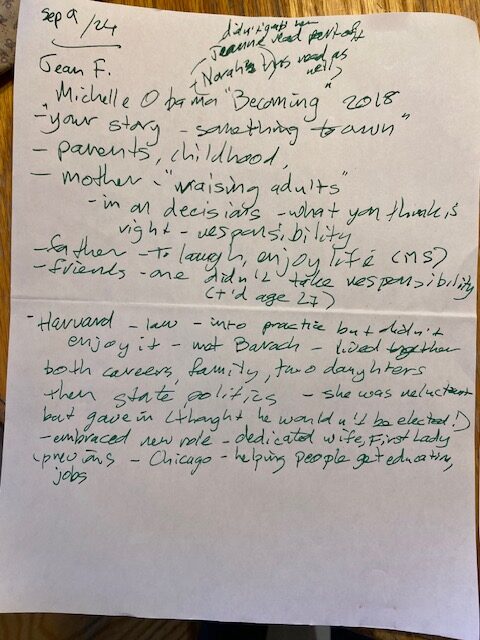 Sep 9/24
Jeanne read part of it
(Norah's          read as
well)
Jean F.
Michelle Obama "Becoming" 2018
- "your story - something to own"
- parents, childhood,
- mother - "raising adults"
- in on decisions - what you think is
right - responsibility
- father - to laugh, enjoy life (MS)
- friends - one didn't take responsibility
(+'d age 27)
- Harvard - law - into practice but didn't
enjoy it - met Barach - lived together
both careers, family, two daughters
then state politics - she was reluctant
but gave in (thought he wouldn't be elected!)
- embraced new role - dedicated wife, First Lady
(previous - Chicago - helping people get education,
jobs